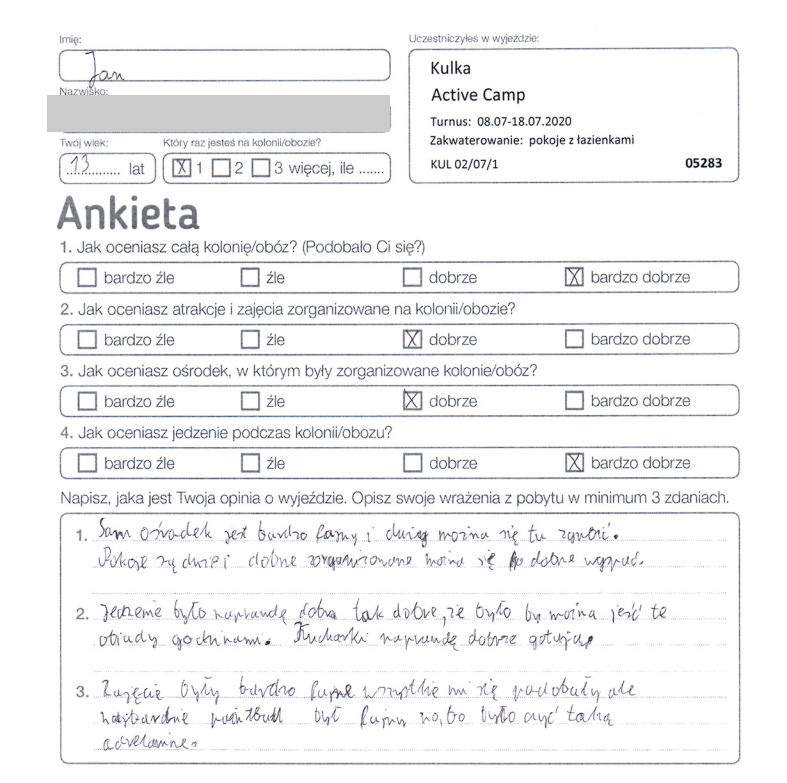 Imię:
Jan
Nazwisko:
Uczestniczyłeś w wyjeździe:
Kulka
Active Camp
Turnus: 08.07-18.07.2020
Zakwaterowanie: pokoje z łazienkami
KUL 02/07/1 05283
Twój wiek: Który raz jesteś na kolonii/obozie?
13 lat X 1 2 3 więcej, ile .......
Ankieta
1. Jak oceniasz całą kolonię/obóz? (Podobało Ci się?)
bardzo źle źle dobrze X bardzo dobrze
2. Jak oceniasz atrakcje i zajęcia zorganizowane na kolonii/obozie?
bardzo źle źle X dobrze bardzo dobrze
3. Jak oceniasz ośrodek, w którym były zorganizowane kolonie/obóz?
bardzo źle źle X dobrze bardzo dobrze
4. Jak oceniasz jedzenie podczas kolonii/obozu?
bardzo źle źle dobrze X bardzo dobrze
Napisz, jaka jest Twoja opinia o wyjeździe. Opisz swoje wrażenia z pobytu w minimum 3 zdaniach.
1. Sam ośrodek jest bardzo fajny i można się tu
Pokoje są i dobrze zorganizowane można się dobrze wyspać.
2. Jedzenie było naprawdę dobre tak dobre, że było by można jeść te
obiady godzinami. Kucharki naprawdę dobrze gotują.
3. Zajęcie były bardzo fajne wszystkie mi się podobały ale
paintball był fajny no, bo było czuć taką